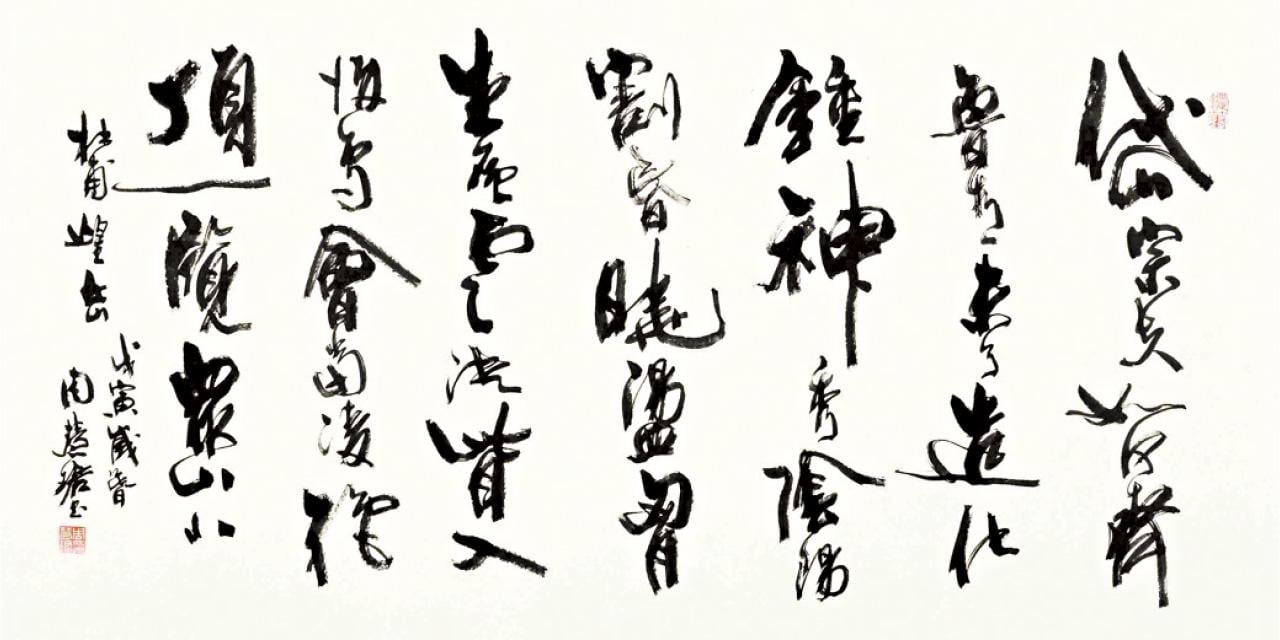 岱宗夫如何齊
魯青未了造化
鍾神秀陰陽
割昏曉盪胷
生層雲決眥入
歸鳥會當凌絕
頂一覽眾山小
杜甫望岳
戊寅歲春
周慧珺書